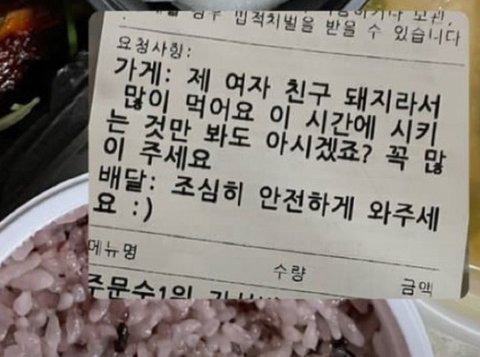 법적처벌을 받을 수 있습니다
요청사항:
가게: 제 여자 친구 돼지라서
많이 먹어요 이 시간에 시키
는 것만 봐도 아시겠죠? 꼭 많
이 주세요
배달: 조심히 안전하게 와주세
요 :)
메뉴명
수량
금액